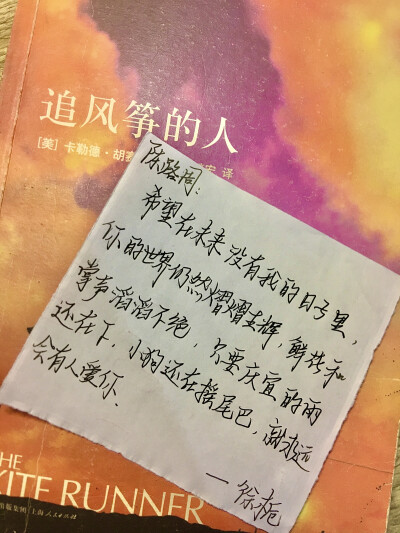 追风筝的人
[美] 卡勒德·胡赛
译
陈路周：
希望在未来没有我的日子里，
你的世界仍然熠熠生辉，鲜花和
掌声滔滔不绝，只要庆宜的雨
还在下，小狗还在摇尾巴，就永远
会有人爱你.
——徐栀
THE
KITE RUNNER
出版集团 上海人民出版社